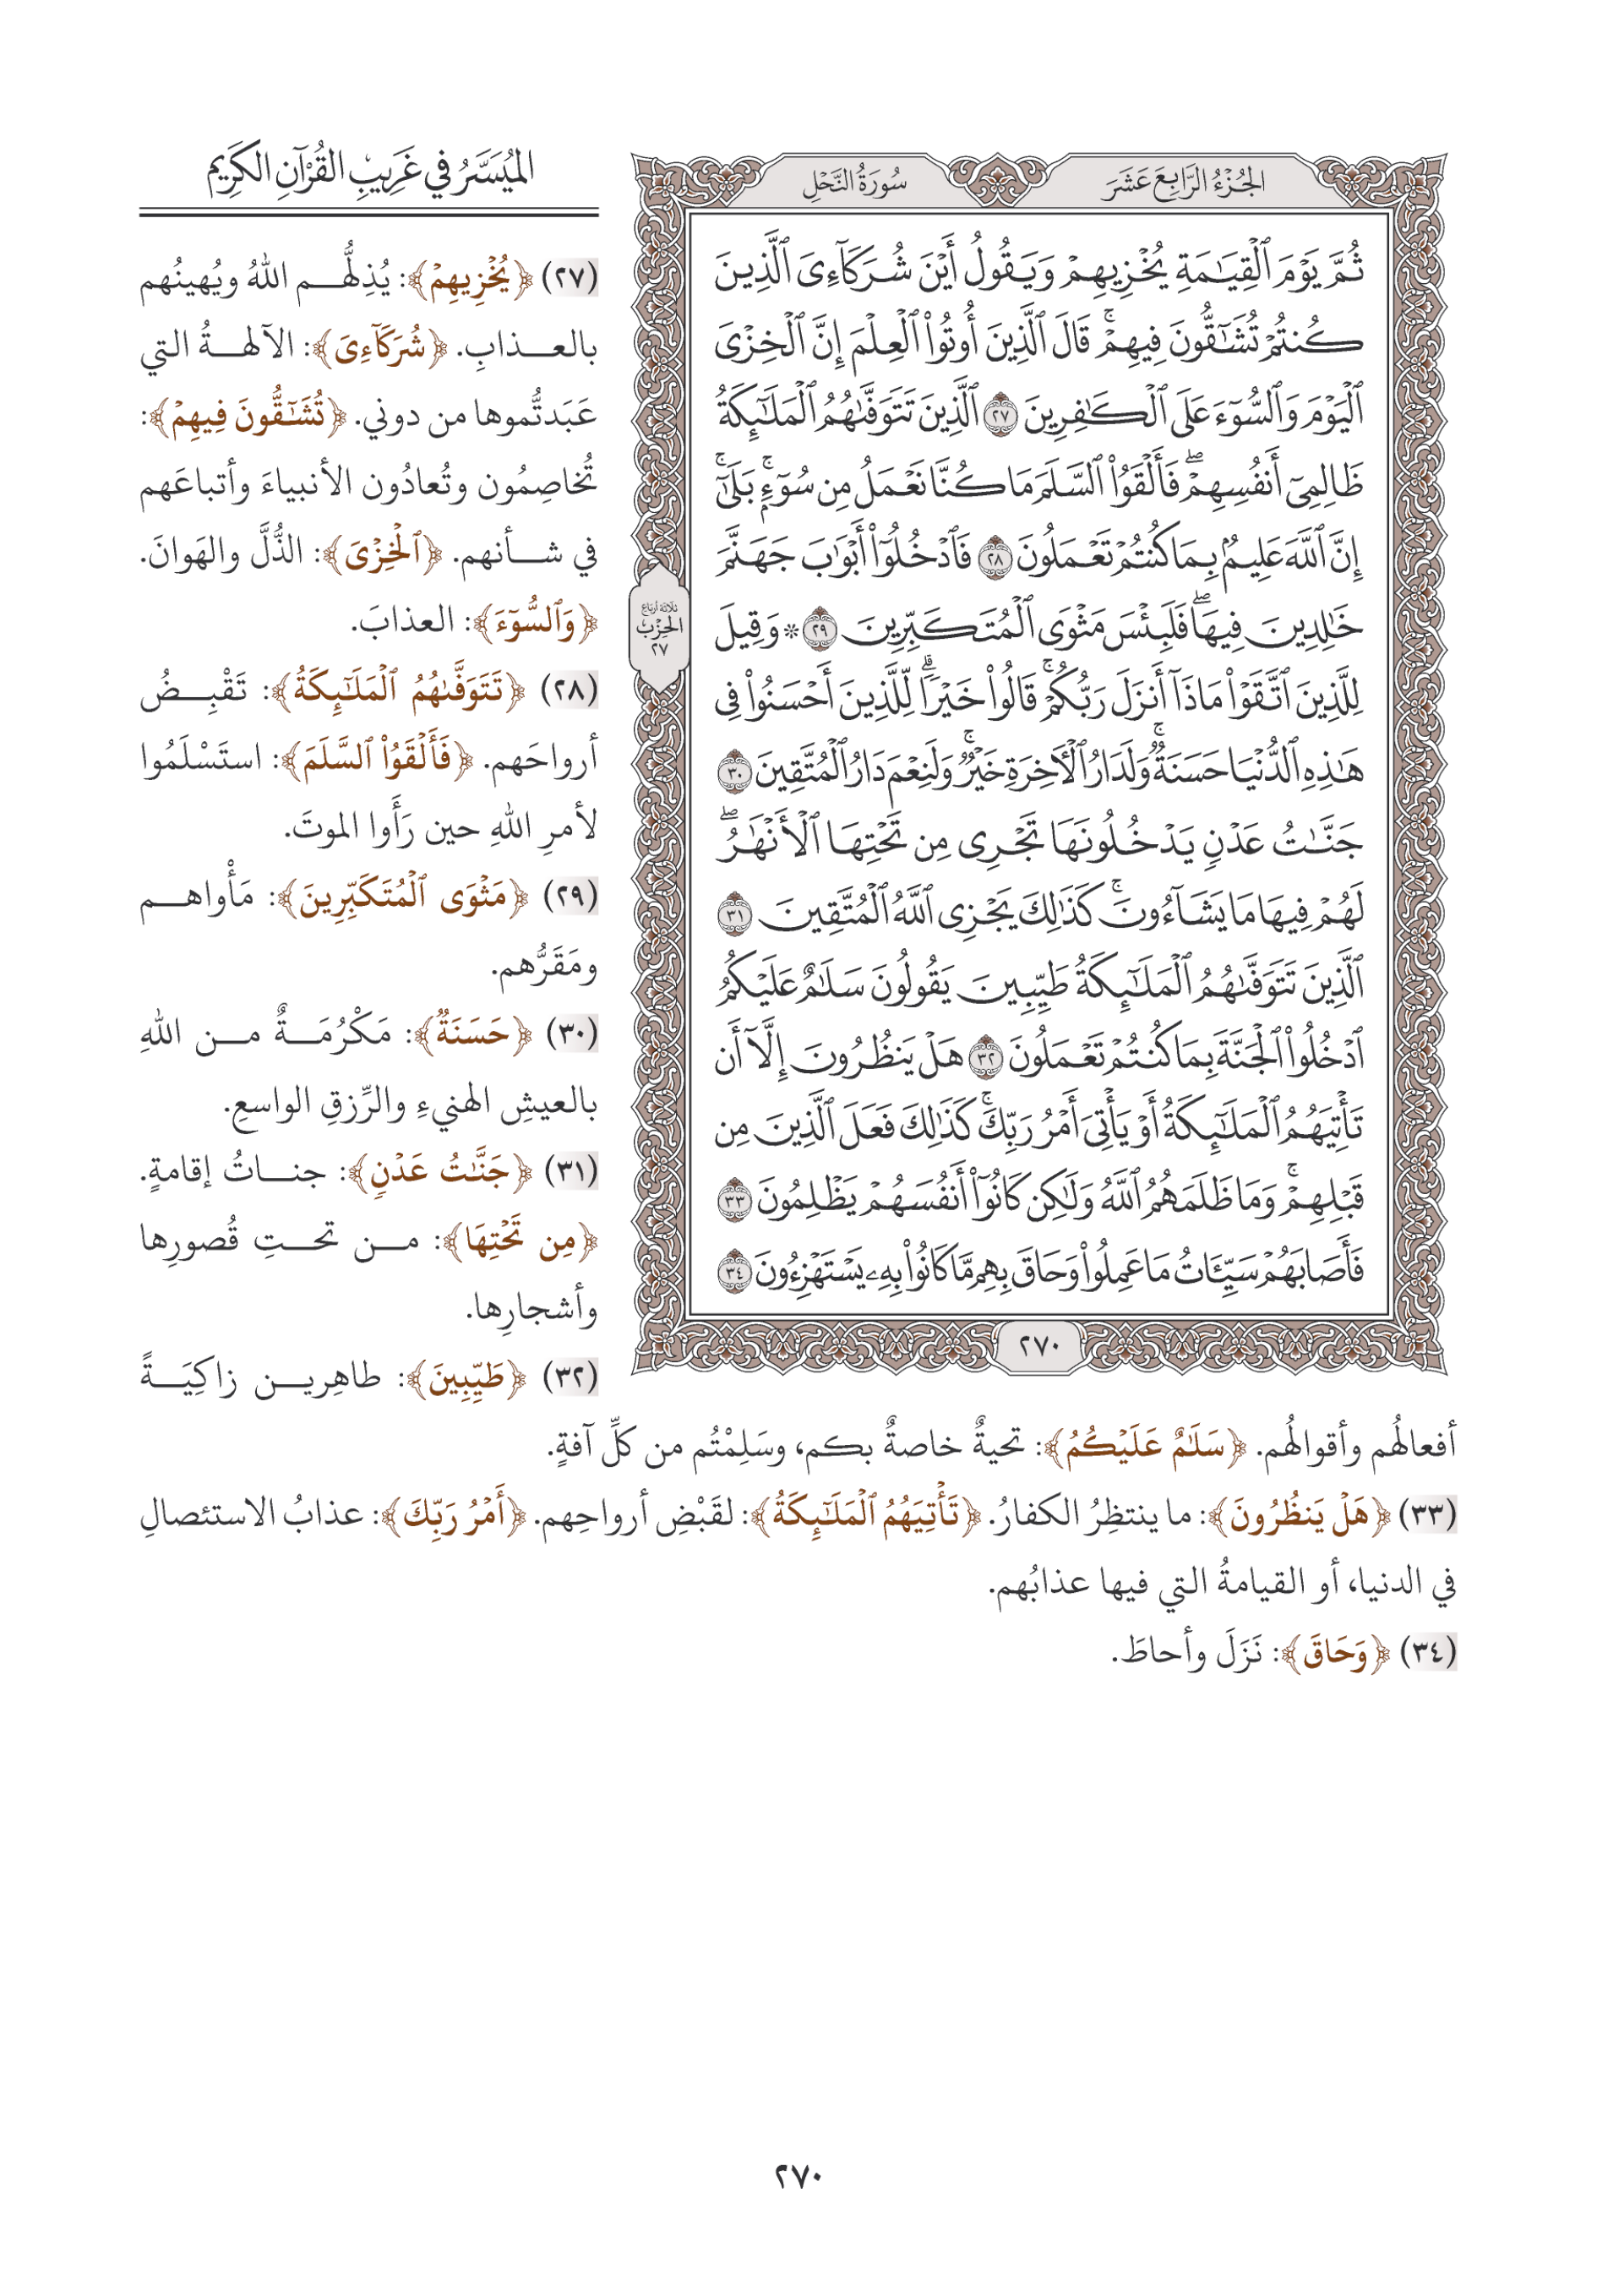 الجُزْءُ الرَّابِعَ عَشَرَ
سُورَةُ النَّحْلِ
ثُمَّ يَوْمَ ٱلْقِيَٰمَةِ يُخْزِيهِمْ وَيَقُولُ أَيْنَ شُرَكَآءِىَ ٱلَّذِينَ
كُنتُمْ تُشَٰٓقُّونَ فِيهِمْۚ قَالَ ٱلَّذِينَ أُوتُوا۟ ٱلْعِلْمَ إِنَّ ٱلْخِزْىَ
ٱلْيَوْمَ وَٱلسُّوٓءَ عَلَى ٱلْكَٰفِرِينَ ٢٧ ٱلَّذِينَ تَتَوَفَّىٰهُمُ ٱلْمَلَٰٓئِكَةُ
ظَالِمِىٓ أَنفُسِهِمْۖ فَأَلْقَوُا۟ ٱلسَّلَمَ مَا كُنَّا نَعْمَلُ مِن سُوٓءٍۭۚ بَلَىٰٓۚ
إِنَّ ٱللَّهَ عَلِيمٌۢ بِمَا كُنتُمْ تَعْمَلُونَ ٢٨ فَٱدْخُلُوٓا۟ أَبْوَٰبَ جَهَنَّمَ
خَٰلِدِينَ فِيهَاۖ فَلَبِئْسَ مَثْوَى ٱلْمُتَكَبِّرِينَ ٢٩ * وَقِيلَ
لِلَّذِينَ ٱتَّقَوْا۟ مَاذَآ أَنزَلَ رَبُّكُمْۚ قَالُوا۟ خَيْرًاۗ لِّلَّذِينَ أَحْسَنُوا۟ فِى
هَٰذِهِ ٱلدُّنْيَا حَسَنَةٌۚ وَلَدَارُ ٱلْأٓخِرَةِ خَيْرٌۚ وَلَنِعْمَ دَارُ ٱلْمُتَّقِينَ ٣٠
جَنَّٰتُ عَدْنٍ يَدْخُلُونَهَا تَجْرِى مِن تَحْتِهَا ٱلْأَنْهَٰرُۖ
لَهُمْ فِيهَا مَا يَشَآءُونَۚ كَذَٰلِكَ يَجْزِى ٱللَّهُ ٱلْمُتَّقِينَ ٣١
ٱلَّذِينَ تَتَوَفَّىٰهُمُ ٱلْمَلَٰٓئِكَةُ طَيِّبِينَ يَقُولُونَ سَلَٰمٌ عَلَيْكُمُ
ٱدْخُلُوا۟ ٱلْجَنَّةَ بِمَا كُنتُمْ تَعْمَلُونَ ٣٢ هَلْ يَنظُرُونَ إِلَّآ أَن
تَأْتِيَهُمُ ٱلْمَلَٰٓئِكَةُ أَوْ يَأْتِىَ أَمْرُ رَبِّكَۚ كَذَٰلِكَ فَعَلَ ٱلَّذِينَ مِن
قَبْلِهِمْۚ وَمَا ظَلَمَهُمُ ٱللَّهُ وَلَٰكِن كَانُوٓا۟ أَنفُسَهُمْ يَظْلِمُونَ ٣٣
فَأَصَابَهُمْ سَيِّـَٔاتُ مَا عَمِلُوا۟ وَحَاقَ بِهِم مَّا كَانُوا۟ بِهِۦ يَسْتَهْزِءُونَ ٣٤
٢٧٠
ثلاثة أرباع
الحِزْب
٢٧
المُيَسَّرُ في غَرِيبِ القُرْآنِ الكَرِيمِ
(٢٧) ﴿يُخْزِيهِمْ﴾: يُذِلُّهُم اللهُ ويُهينُهم
بالعذابِ. ﴿شُرَكَآءِىَ﴾: الآلهةُ التي
عَبَدتُّموها من دوني. ﴿تُشَٰٓقُّونَ فِيهِمْ﴾:
تُخاصِمُون وتُعادُون الأنبياءَ وأتباعَهم
في شأنهم. ﴿ٱلْخِزْىَ﴾: الذُّلَّ والهَوانَ.
﴿وَٱلسُّوٓءَ﴾: العذابَ.
(٢٨) ﴿تَتَوَفَّىٰهُمُ ٱلْمَلَٰٓئِكَةُ﴾: تَقْبِضُ
أرواحَهم. ﴿فَأَلْقَوُا۟ ٱلسَّلَمَ﴾: استَسْلَمُوا
لأمرِ اللهِ حين رَأَوا الموتَ.
(٢٩) ﴿مَثْوَى ٱلْمُتَكَبِّرِينَ﴾: مَأْواهم
ومَقَرُّهم.
(٣٠) ﴿حَسَنَةٌ﴾: مَكْرُمَةٌ من اللهِ
بالعيشِ الهنيءِ والرِّزقِ الواسعِ.
(٣١) ﴿جَنَّٰتُ عَدْنٍ﴾: جناتُ إقامةٍ.
﴿مِن تَحْتِهَا﴾: من تحتِ قُصورِها
وأشجارِها.
(٣٢) ﴿طَيِّبِينَ﴾: طاهِرين زاكِيَةً
أفعالُهم وأقوالُهم. ﴿سَلَٰمٌ عَلَيْكُمُ﴾: تحيةٌ خاصةٌ بكم، وسَلِمْتُم من كلِّ آفةٍ.
(٣٣) ﴿هَلْ يَنظُرُونَ﴾: ما ينتظِرُ الكفارُ. ﴿تَأْتِيَهُمُ ٱلْمَلَٰٓئِكَةُ﴾: لقَبْضِ أرواحِهم. ﴿أَمْرُ رَبِّكَ﴾: عذابُ الاستئصالِ
في الدنيا، أو القيامةُ التي فيها عذابُهم.
(٣٤) ﴿وَحَاقَ﴾: نَزَلَ وأحاطَ.
٢٧٠